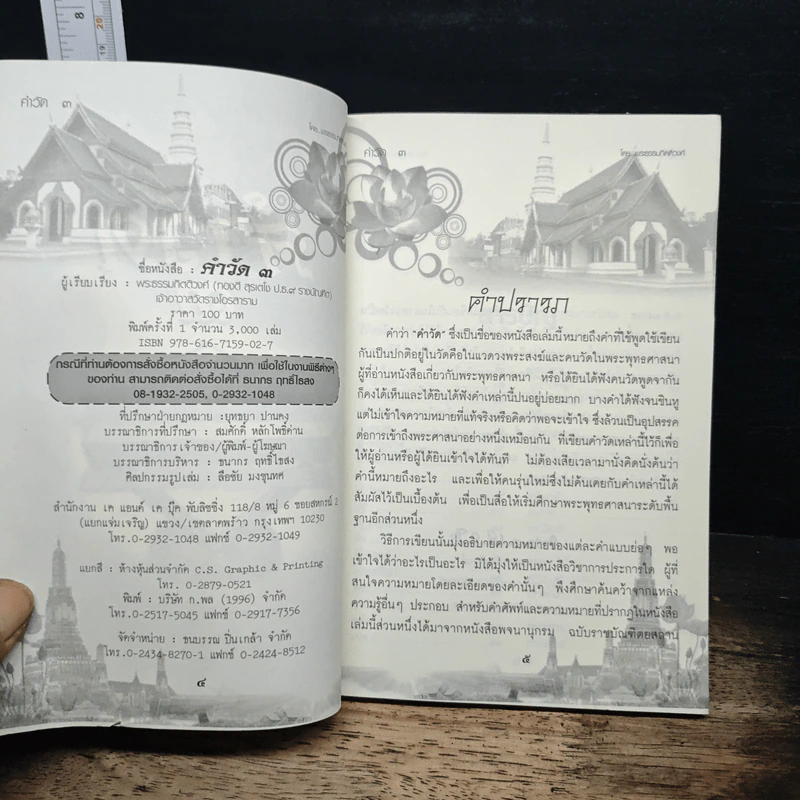 คำวัด ๓
ชื่อหนังสือ : คำวัด ๓
ผู้เรียบเรียง : พระธรรมกิตติวงศ์ (ทองดี สุรเตโช ป.ธ.๙ ราชบัณฑิต)
เจ้าอาวาสวัดราชโอรสาราม
ราคา 100 บาท
พิมพ์ครั้งที่ 1 จำนวน 3,000 เล่ม
ISBN 978-616-7159-02-7
กรณีที่ท่านต้องการสั่งซื้อหนังสือจำนวนมาก เพื่อใช้ในงานพิธีต่างๆ
ของท่าน สามารถติดต่อสั่งซื้อได้ที่ ธนากร ฤทธิ์ไธสง
08-1932-2505, 0-2932-1048
ที่ปรึกษาฝ่ายกฎหมาย : ยุทธยา ปานคง
บรรณาธิการที่ปรึกษา : สมศักดิ์ หลักโพธิ์ค่าน
บรรณาธิการเจ้าของ/ผู้พิมพ์-ผู้โฆษณา
บรรณาธิการบริหาร : ธนากร ฤทธิ์ไธสง
ศิลปกรรมรูปเล่ม : ลือชัย มงขุนทศ
สำนักงาน เค แอนด์ เค บุ๊ค พับลิชชิ่ง 118/8 หมู่ 6 ซอยสหกรณ์ 2
(แยกแจ่มเจริญ) แขวง/เขตลาดพร้าว กรุงเทพฯ 10230
โทร.0-2932-1048 แฟกซ์ 0-2932-1049
แยกสี : ห้างหุ้นส่วนจำกัด C.S. Graphic & Printing
โทร. 0-2879-0521
พิมพ์ : บริษัท ก.พล (1996) จำกัด
โทร.0-2517-5045 แฟกซ์ 0-2917-7356
จัดจำหน่าย : ชนบรรณ ปิ่นเกล้า จำกัด
โทร.0-2434-8270-1 แฟกซ์ 0-2424-8512
๔
คำวัด ๓
โดย..พระธรรมกิตติวงศ์
คำปรารภ
คำว่า "คำวัด" ซึ่งเป็นชื่อของหนังสือเล่มนี้หมายถึงคำที่ใช้พูดใช้เขียน
กันเป็นปกติอยู่ในวัดคือในแวดวงพระสงฆ์และคนวัดในพระพุทธศาสนา
ผู้ที่อ่านหนังสือเกี่ยวกับพระพุทธศาสนา หรือได้ยินได้ฟังคนวัดพูดจากัน
ก็คงได้เห็นและได้ยินได้ฟังคำเหล่านี้บ่อยมาก บางคำได้ฟังจนชินหู
แต่ไม่เข้าใจความหมายที่แท้จริงหรือคิดว่าพอจะเข้าใจ ซึ่งล้วนเป็นอุปสรรค
ต่อการเข้าถึงพระศาสนาอย่างหนึ่งเหมือนกัน ที่เขียนคำวัดเหล่านี้ไว้ก็เพื่อ
ให้ผู้อ่านหรือผู้ได้ยินเข้าใจได้ทันที ไม่ต้องเสียเวลามานั่งคิดนั่งค้นว่า
คำนี้หมายถึงอะไร และเพื่อให้คนรุ่นใหม่ซึ่งไม่คุ้นเคยกับคำเหล่านี้ได้
สัมผัสไว้เป็นเบื้องต้น เพื่อเป็นสื่อให้เริ่มศึกษาพระพุทธศาสนาระดับพื้น
ฐานอีกส่วนหนึ่ง
วิธีการเขียนนั้นมุ่งอธิบายความหมายของแต่ละคำแบบย่อๆ พอ
เข้าใจได้ว่าอะไรเป็นอะไร มิได้มุ่งให้เป็นหนังสือวิชาการประการใด ผู้ที่
สนใจความหมายโดยละเอียดของคำนั้นๆ พึงศึกษาค้นคว้าจากแหล่ง
ความรู้อื่นๆ ประกอบ สำหรับคำศัพท์และความหมายที่ปรากฏในหนังสือ
เล่มนี้ส่วนหนึ่งได้มาจากหนังสือพจนานุกรม ฉบับราชบัณฑิตยสถาน
๕